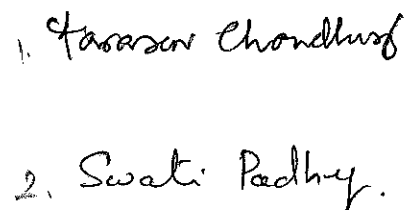 1. Tarasar Chondhury
2. Swati Padhy.